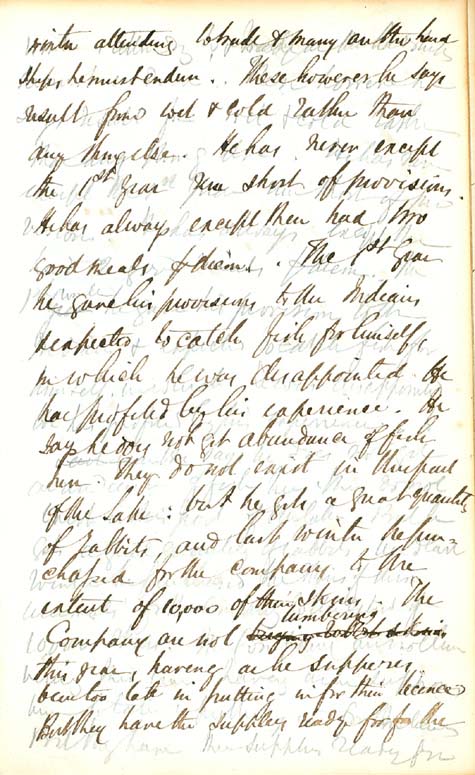 winter attending to trade & many are the hard
ships he must endure. These however he says
result from wet & cold rather than
any thing else. He has never except
the 1st year run short of provisions.
He has always except then had two
good meals per diem. The 1st year
he gave his provisions to the Indians
& expected to catch fish for himself,
in which he was disappointed. He
has profited by his experience. He
says he does not get abundance of fish
here. They do not exist in this part
of the Lake: but he gets a great quantity
of rabbits and last winter he pur-
chased for the company to the
extent of 10,000 of their skins. The
Company are not lumbering
this year, having as he supposes
been too late in putting in for their licence
But they have the supplies ready for the